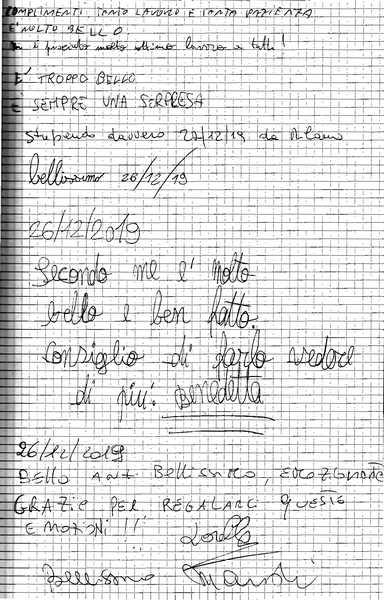 COMPLIMENTI TANTO LAVORO E TANTA PAZIENZA
E' MOLTO BELLO.
è piaciuto molto ottimo lavoro a tutti!
E' TROPPO BELLO
E' SEMPRE UNA SERPRESA
Stupendo davvero 27/12/19 da Milano
bellissimo 26/12/19
26/12/2019
Secondo me e' molto
bello e ben fatto.
Consiglio di farlo vedere
di piu'. Benedetta
26/12/2019
BELLO ANZI BELLISSIMO, EMOZIONANTE
GRAZIE PER REGALARCI QUESTE
EMOZIONI !!!
Bellissimo